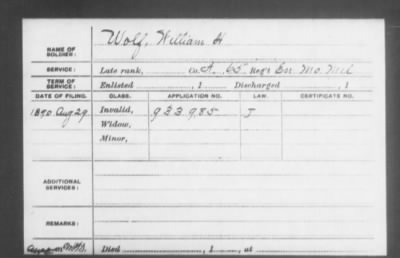 NAME OF SOLDIER: Wolf, William H
SERVICE: Late rank, Co. A, 65 Reg't En Mo Mil
TERM OF SERVICE: Enlisted , 1 Discharged , 1
DATE OF FILING. CLASS. APPLICATION NO. LAW. CERTIFICATE NO.
1890 Aug 29 Invalid, 933.985 J
Widow,
Minor,
ADDITIONAL SERVICES:
REMARKS:
Died , 1 , at